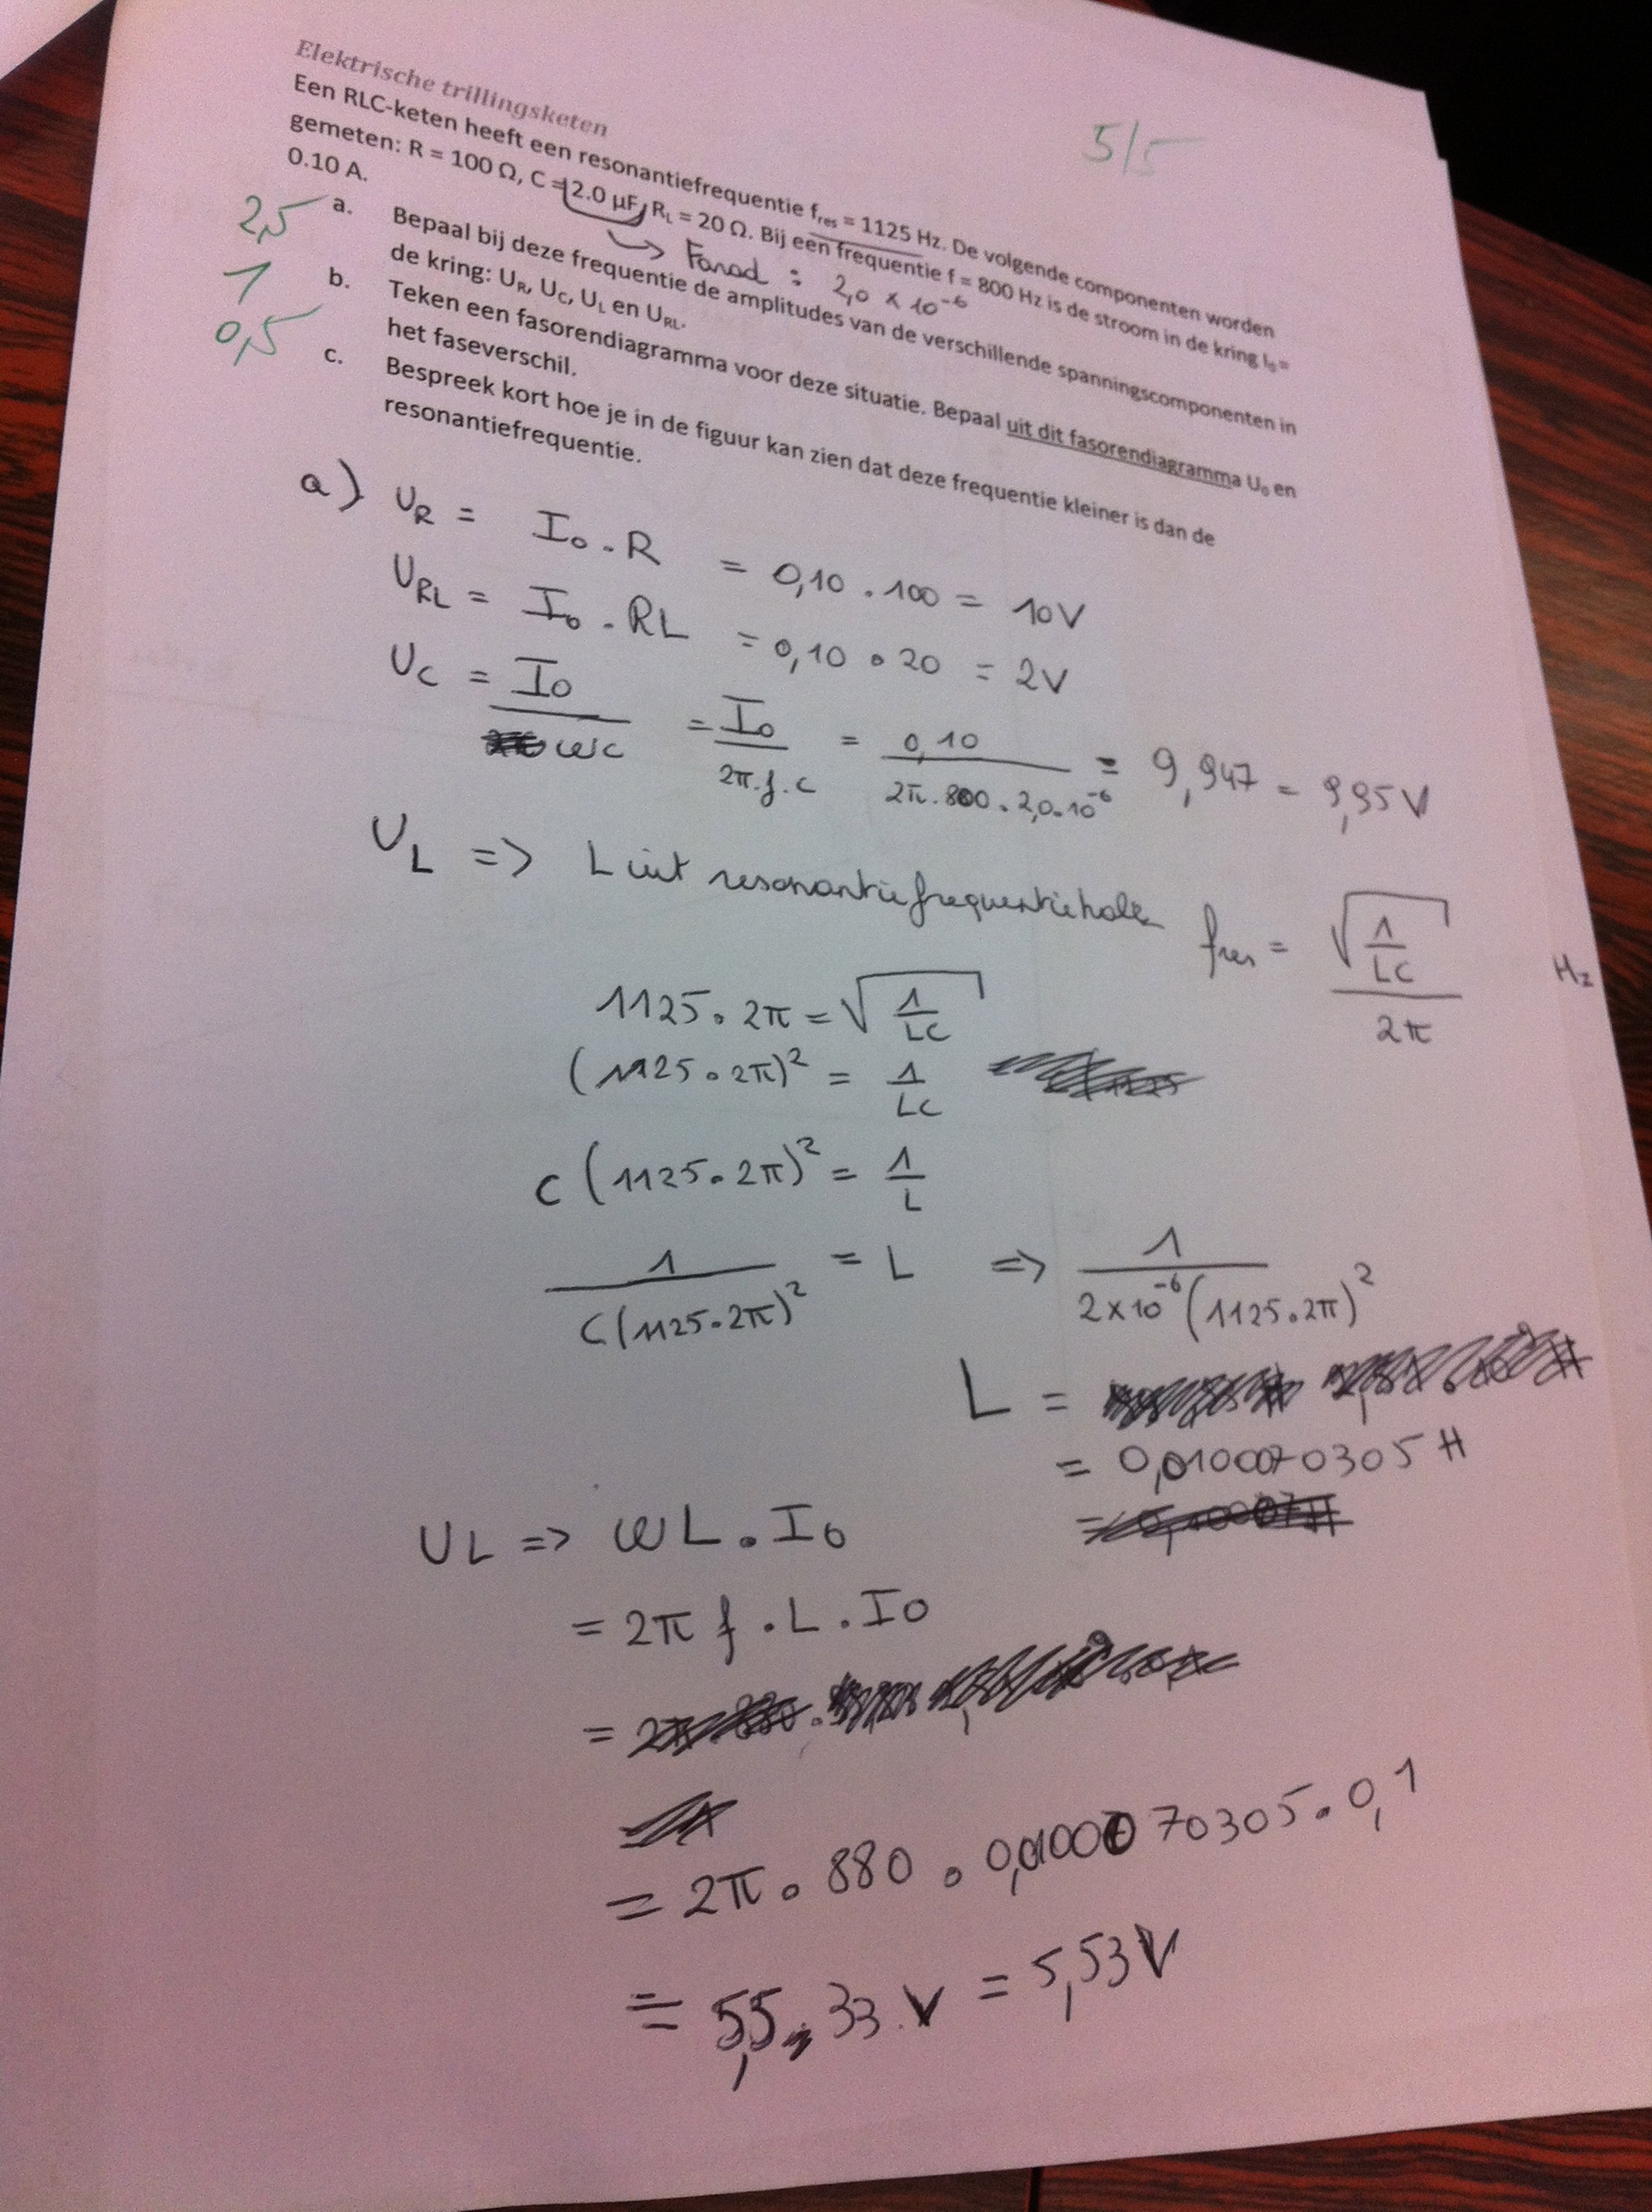 Elektrische trillingsketen
5/5
Een RLC-keten heeft een resonantiefrequentie fres = 1125 Hz. De volgende componenten worden
gemeten: R = 100 Ω, C = 2.0 µF, RL = 20 Ω. Bij een frequentie f = 800 Hz is de stroom in de kring I0 =
0.10 A.
→ Farad : 2,0 × 10⁻⁶
2,5 a. Bepaal bij deze frequentie de amplitudes van de verschillende spanningscomponenten in
de kring: UR, UC, UL en URL.
1 b. Teken een fasorendiagramma voor deze situatie. Bepaal uit dit fasorendiagramma U0 en
het faseverschil.
0,5 c. Bespreek kort hoe je in de figuur kan zien dat deze frequentie kleiner is dan de
resonantiefrequentie.
a) UR = I0 . R = 0,10 . 100 = 10V
URL = I0 . RL = 0,10 . 20 = 2V
UC = I0 / ωC = I0 / 2π.f.C = 0,10 / 2π.800.2,0.10⁻⁶ = 9,947 = 9,95 V
UL => L uit resonantiefrequentie halen fres = √(1/LC) / 2π Hz
1125 . 2π = √(1/LC)
(1125 . 2π)² = 1/LC
C (1125 . 2π)² = 1/L
1 / C(1125 . 2π)² = L => 1 / 2×10⁻⁶ (1125 . 2π)²
L =
= 0,0100070305 H
UL => ωL . I0
= 2π f . L . I0
=
= 2π . 880 . 0,0100070305 . 0,1
= 5,5 33 V = 5,53V